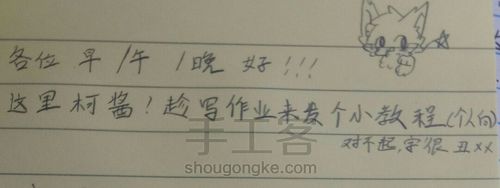 各位 早/午/晚 好!!!
这里柯酱!趁写作业来发个小教程(个人向)
对不起,字很丑xx
手工客
shougongke.com